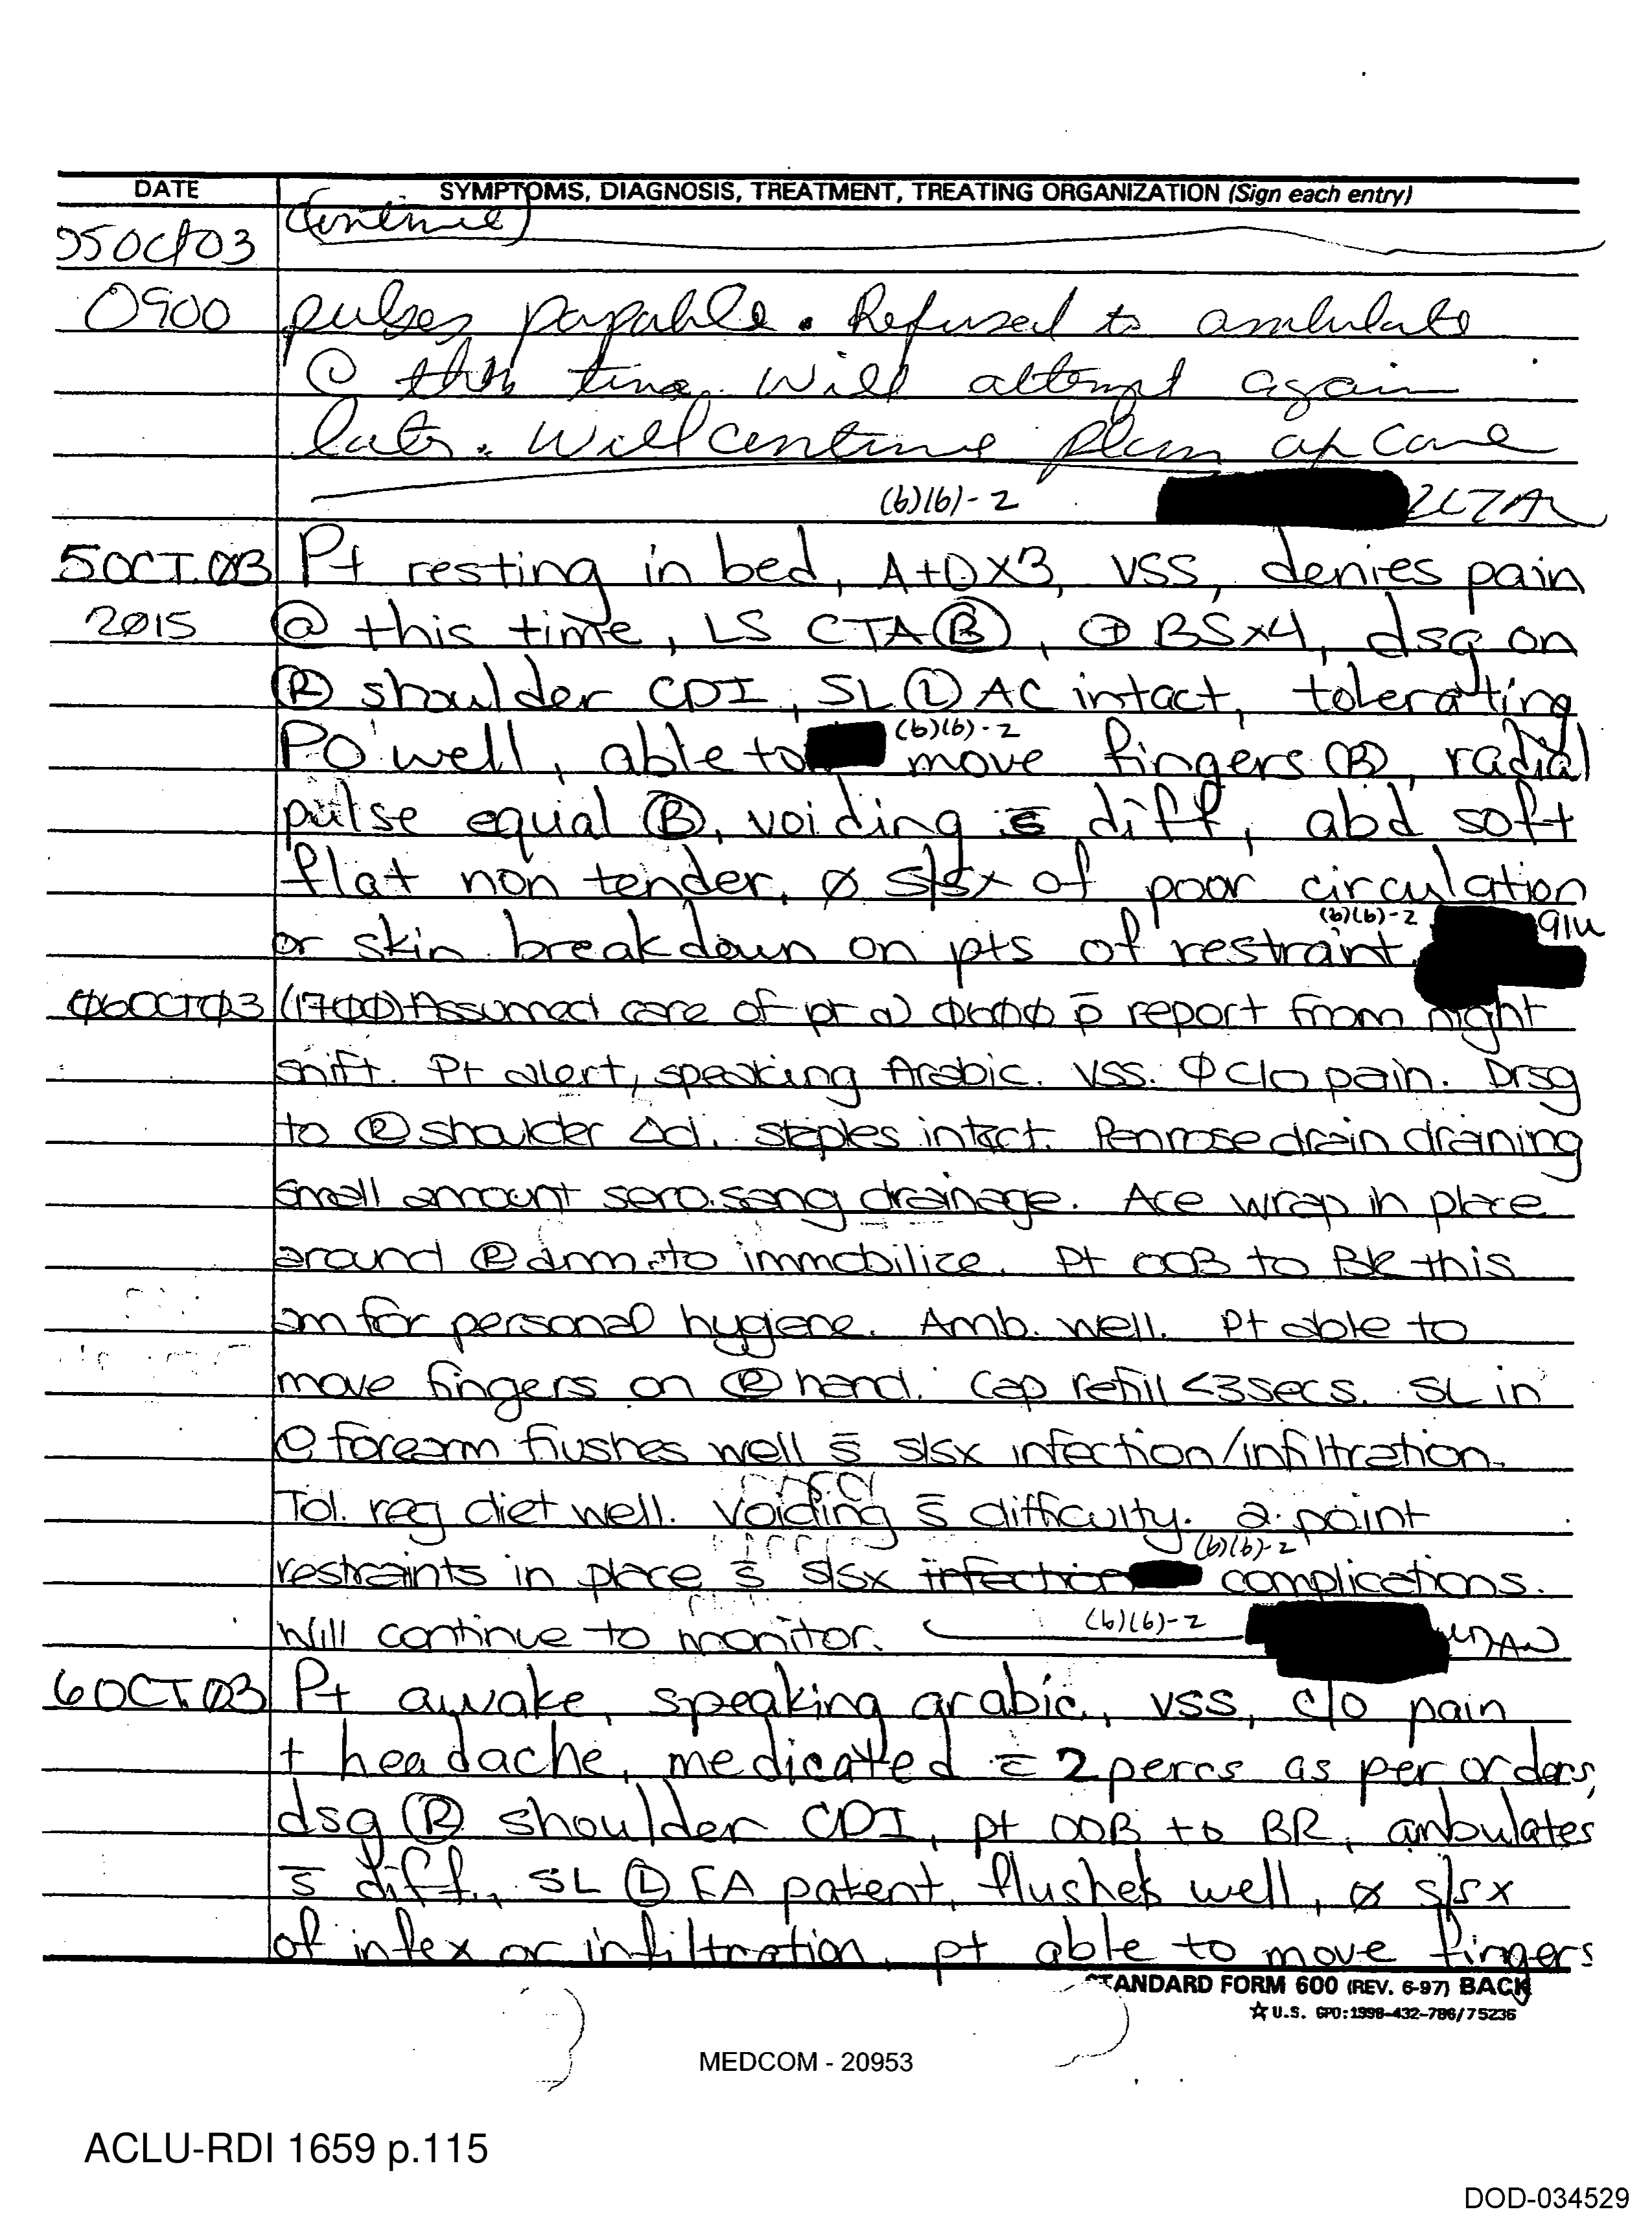 DATE SYMPTOMS, DIAGNOSIS, TREATMENT, TREATING ORGANIZATION (Sign each entry)
05Oct03 (Continue)
0900 pulses papable. Refused to ambulate
@ this time. Will attempt again
later. Will continue plan of care
(b)(6)-2 2LT AN
5OCT.Ø3 Pt resting in bed, A+Ox3, VSS, denies pain
2Ø15 @ this time, LS CTA Ⓑ, ⊕ BSx4, dsg on
Ⓡ shoulder CDI, SL Ⓛ AC intact, tolerating
PO well, able to (b)(6)-2 move fingers Ⓑ, radial
pulse equal Ⓑ, voiding s̄ diff, abd soft
flat non tender, Ø s/sx of poor circulation
or skin breakdown on pts of restraint. (b)(6)-2 91W
Ø6OCTØ3 (17ØØ) Assumed care of pt @ Ø6ØØ p̄ report from night
shift. Pt alert, speaking Arabic. VSS. Ø c/o pain. Drsg
to Ⓡ shoulder Δd. Staples intact. Penrose drain draining
small amount sero.sang drainage. Ace wrap in place
around Ⓡ arm to immobilize. Pt OOB to BR this
am for personal hygiene. Amb. well. Pt able to
move fingers on Ⓡ hand. Cap refill <3secs. SL in
Ⓛ forearm flushes well s̄ s/sx infection/infiltration.
Tol. reg diet well. Voiding s̄ difficulty. 2-point
restraints in place s̄ s/sx infection (b)(6)-2 complications.
Will continue to monitor. (b)(6)-2 AN
6OCT.Ø3 Pt awake, speaking arabic, VSS, c/o pain
+ headache, medicated c̄ 2 percs as per orders,
dsg Ⓡ shoulder CDI, pt OOB to BR, ambulates
s̄ diff, SL Ⓛ FA patent, flushes well, Ø s/sx
of infex or infiltration, pt able to move fingers
STANDARD FORM 600 (REV. 6-97) BACK
☆ U.S. GPO: 1998-432-786/75236
MEDCOM - 20953
ACLU-RDI 1659 p.115
DOD-034529